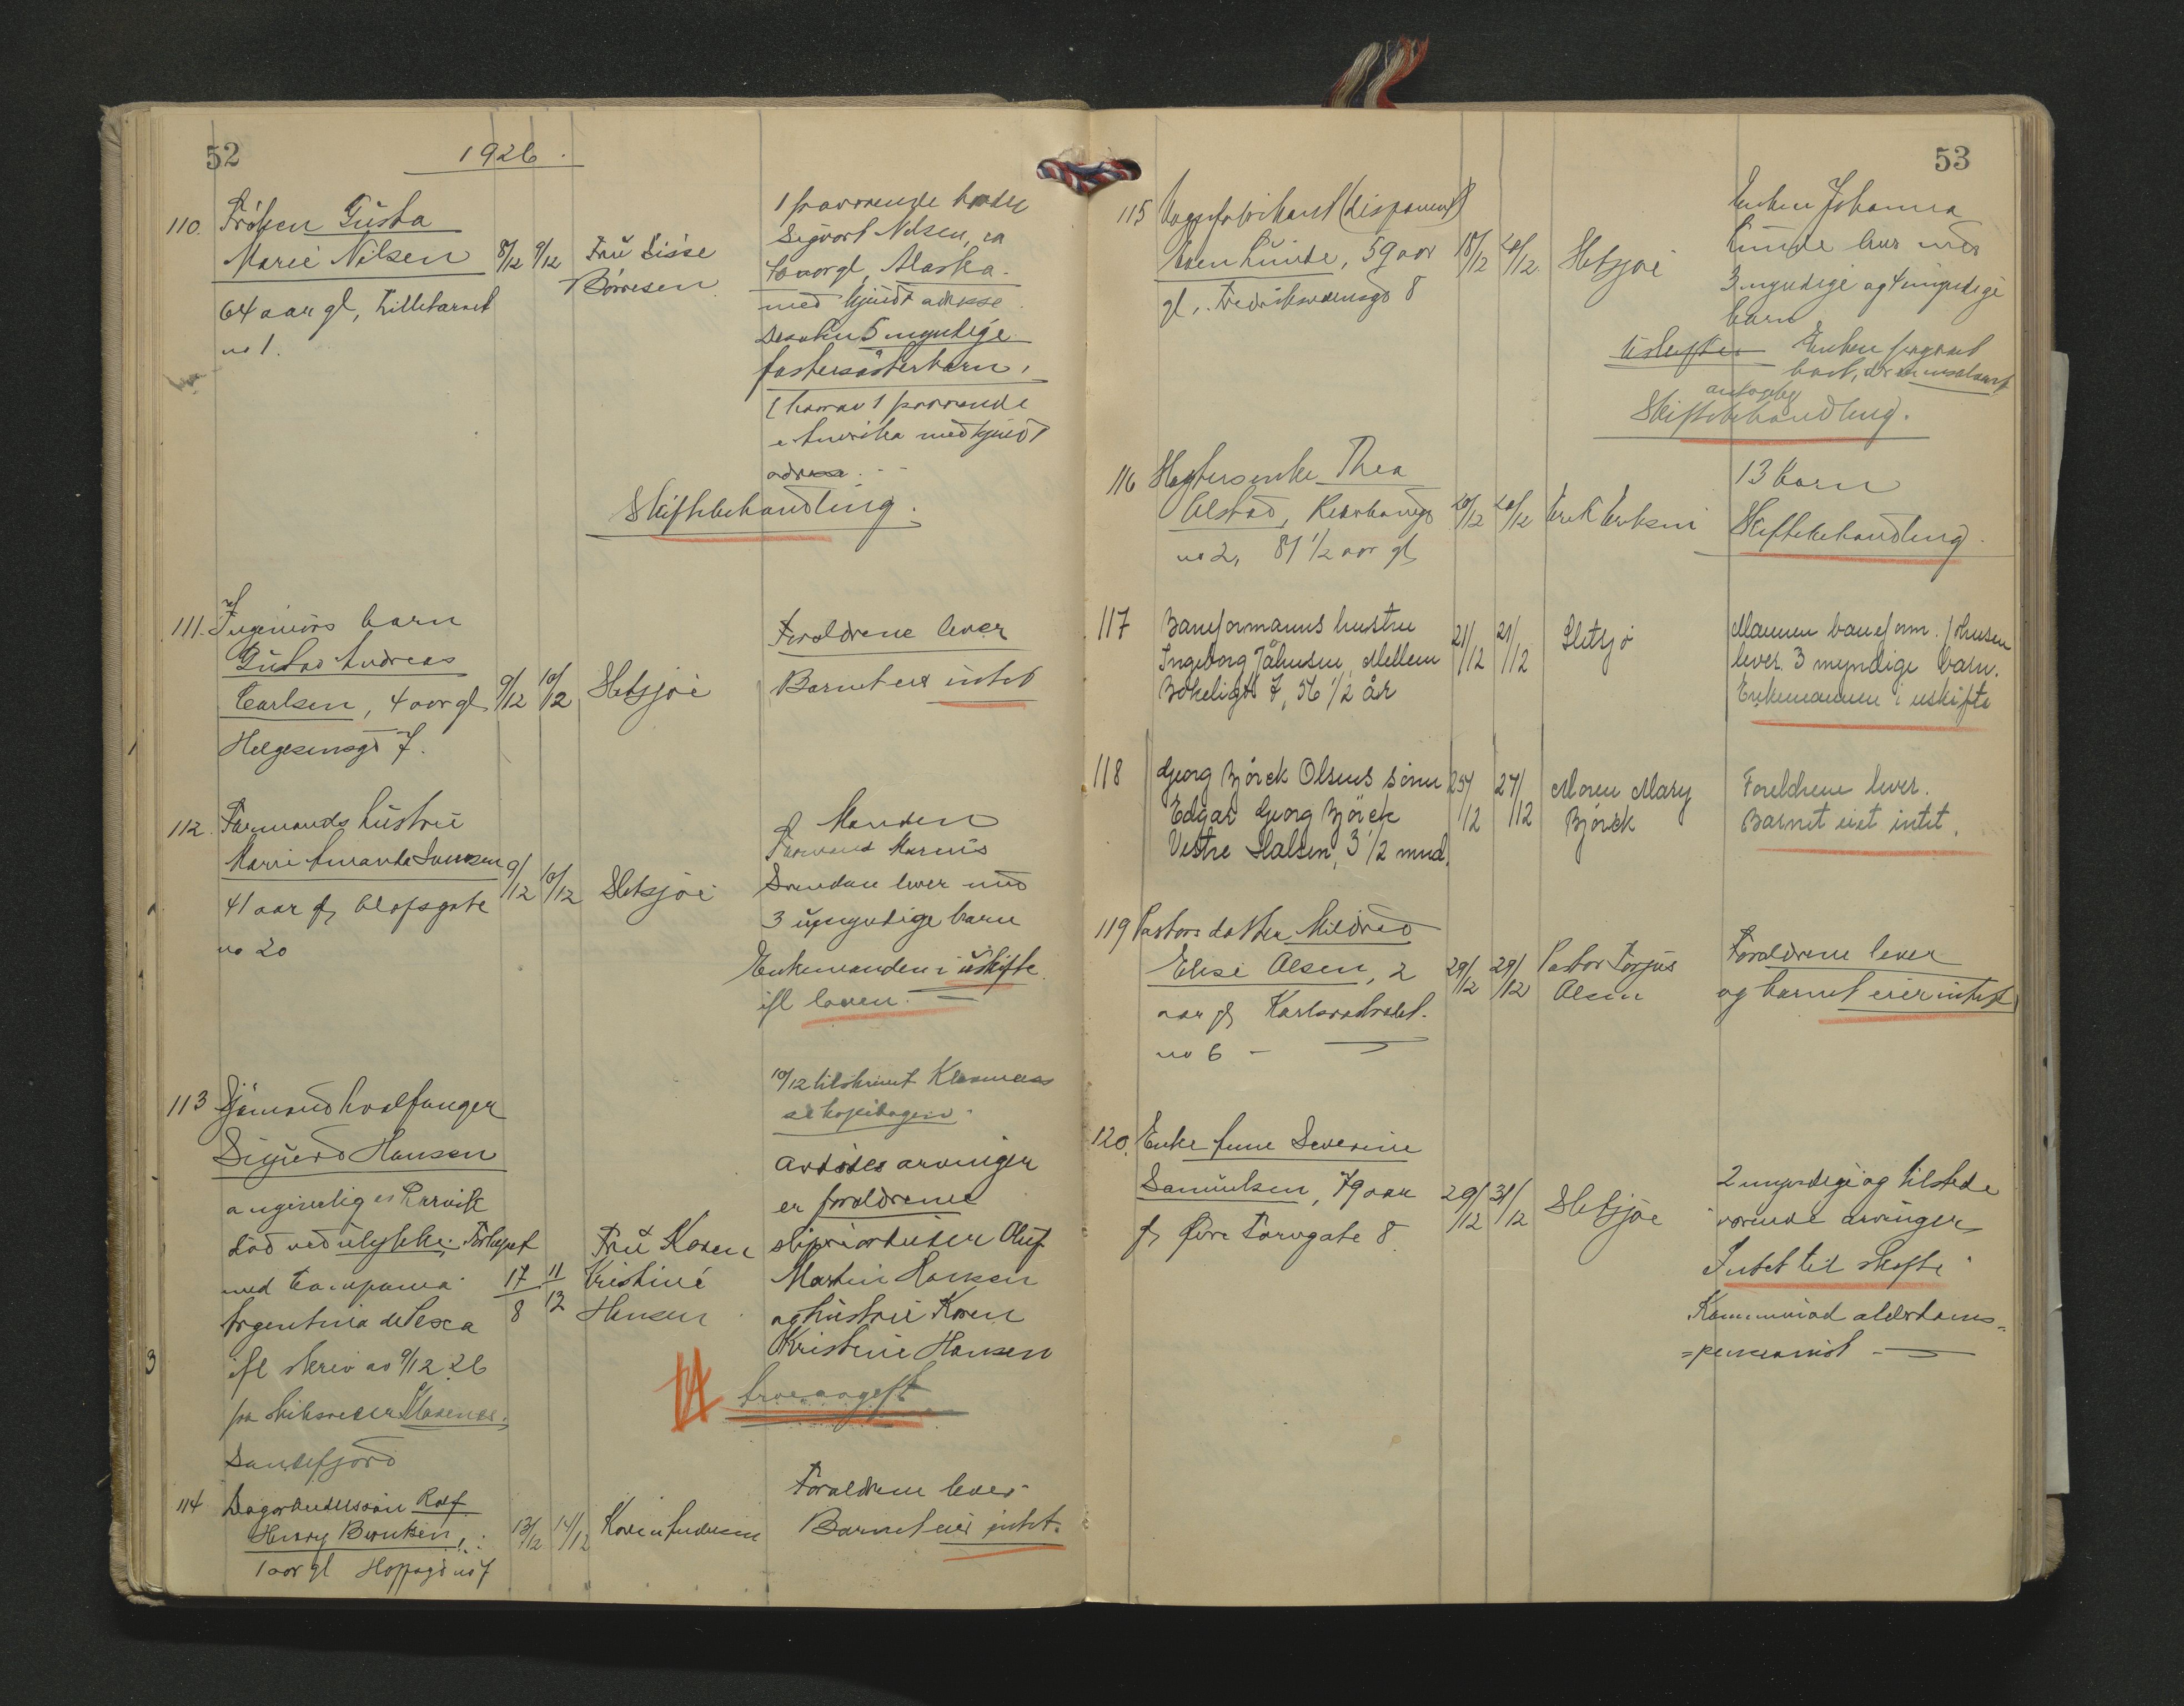 52
1926.
110. Frøken Gusta
Marie Nilsen
64 aar gl, Lilletorvet
no 1.
8/12 9/12
Fru Lisse
Børresen
1 fraværende broder
Sigvart Nilsen, ca
aar gl, Alaska.
med kjendt adresse.
Desuten 5 myndige
søsterbarn,
(hvorav 1 fraværende
i Amerika med kjendt
adresse.
Skiftebehandling.
111. Ingeniørs barn
Gustav Andreas
Carlsen, 4 aar gl
Helgesensgd 7.
9/12 10/12
Sletsjøe
Forældrene lever
Barnet eier intet
112. Formands hustru
Marie Amanda Svendsen
41 aar gl, Olafsgate
no 20
9/12 10/12
Sletsjøe
Manden
Formand Marius
Svendsen lever med
3 umyndige barn
Enkemanden i uskifte
ifl loven.
113 Sjømand hvalfanger
Sigurd Hansen
angivelig i Larvik
død ved ulykke. Forhyret
med Compania
Argentina de Pesca
ifl skriv av 9/12 26
fra skibsreder
Sandefjord
17/8 11/12
Fru Karen
Kristine
Hansen
10/12 tilskrevet
se kopibogen.
Avdødes arvinger
er forældrene
sliperiarbeider Oluf
Martin Hansen
og hustru Karen
Kristine Hansen
Arveavgift
114 Dagarbeiderssøn Rolf
Henry Berntsen,
1 aar gl Hoppsgd no 7
13/12 14/12
Karen Andersen
Forældrene lever
Barnet eier intet.
53
115 Vognfabrikant (disponent)
Lunde, 59 aar
gl,. Fredriksvernsgd 8
18/12 20/12
Sletsjøe
Enken Johanna
Lunde lever med
3 myndige og 4 umyndige
barn
Uskifte Enken
bort, da er insolvent
antagelig
Skiftebehandling.
116 Enke Thea
Olstad,
no 2, 81 1/2 aar gl
20/12 20/12
Erik Eriksen
13 barn
Skiftebehandling.
117 Baneformanns hustru
Ingeborg Johnsen, Mellem
Bøkeligt 7, 56 1/2 år
21/12 21/12
Sletsjø
Mannen baneform. Johnsen
lever. 3 myndige barn.
Enkemannen i uskifte
118 Georg Bjørck Olsens sønn
Edgar Georg Bjørck
Vestre Halsen, 3 1/2 mnd.
25/12 27/12
Moren Mary
Bjørck
Foreldrene lever.
Barnet eiet intet.
119 Pastors datter Mildred
Elise Olsen, 2
aar gl
no 6 –
29/12 29/12
Pastor Torjus
Olsen
Forældrene lever
og barnet eier intet
120. Enke Anne Severine
Samuelsen, 79 aar
gl Øvre Torvgate 8
29/12 31/12
Sletsjøe
2 myndige og tilstede
værende arvinger
Intet til skifte
Kommunal alderdoms=
=pensionist –